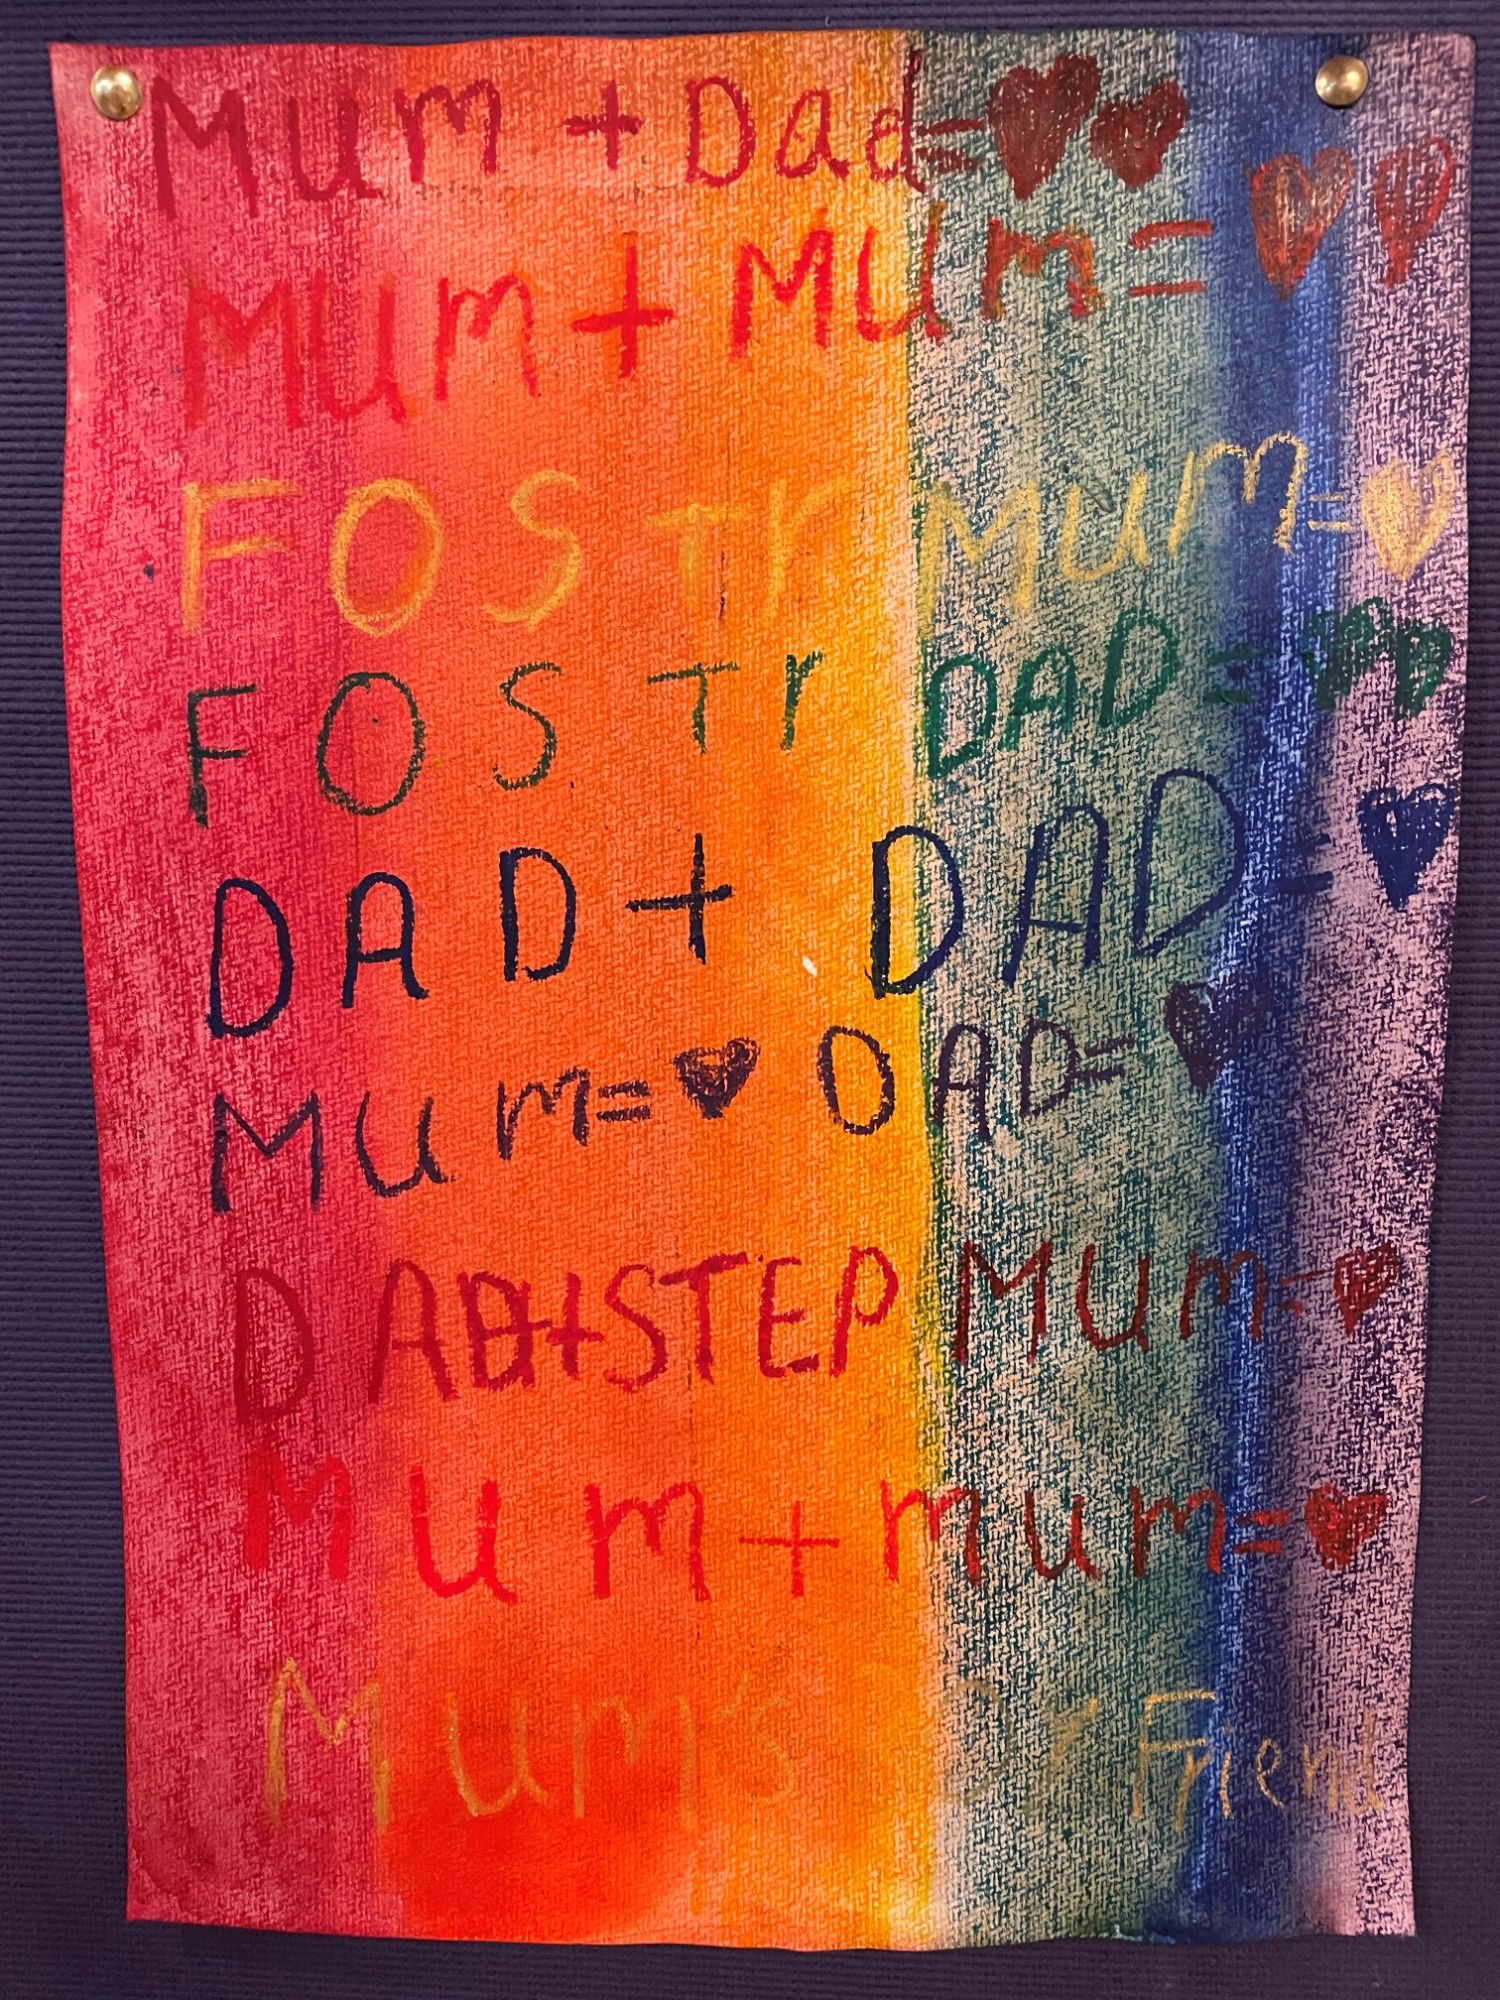 Mum + Dad = ❤❤
Mum + Mum = ❤❤
FOSTr Mum = ❤
FOSTr DAD = ❤❤
DAD + DAD = ❤
Mum = ❤ DAD = ❤
DAD + STEP Mum = ❤
Mum + mum = ❤
Mum's Friend